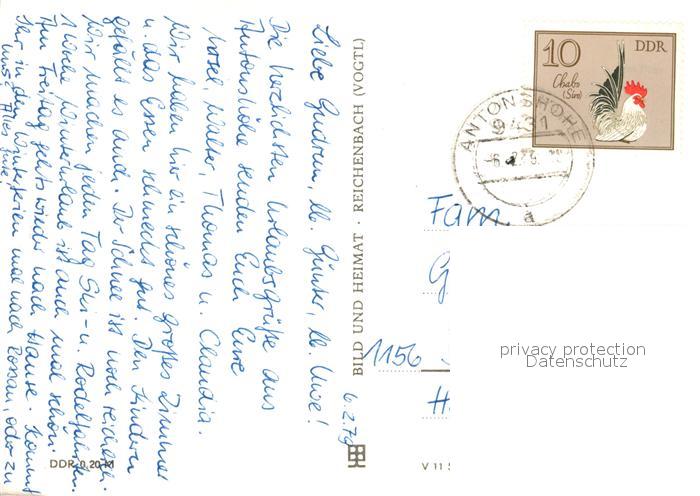 6.2.79
Liebe Gudrun, lb. Günter, lb. Uwe!
Die herzlichsten Urlaubsgrüße aus
Antonshöhe senden Euch Eure
Rosel, Walter, Thomas u. Claudia.
Wir haben hier ein schönes großes Zimmer
u. das Essen schmeckt gut. Den Kindern
gefällt es auch. Der Schnee ist noch reichlich.
Wir machen jeden Tag Ski- u. Rodelfahrten.
1 Woche Winterurlaub ist auch mal schön.
Am Freitag gehts wieder nach Hause. Kommt
Ihr in den Winterferien mal nach Rossau, oder zu
uns? Alles Gute!
DDR 0,20 M
BILD UND HEIMAT · REICHENBACH (VOGTL)
V 11
10
DDR
Chabo
(Siro)
ANTONSHÖHE
9431
a
Fam.
G
1156
H
privacy protection
Datenschutz